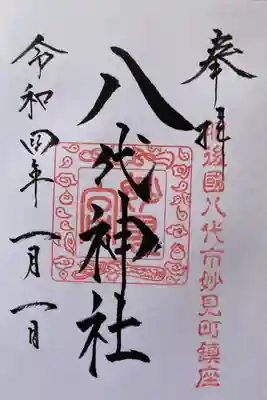 奉拝
肥後國八代市妙見町鎮座
八代神社
妙見宮
令和四年一月一日